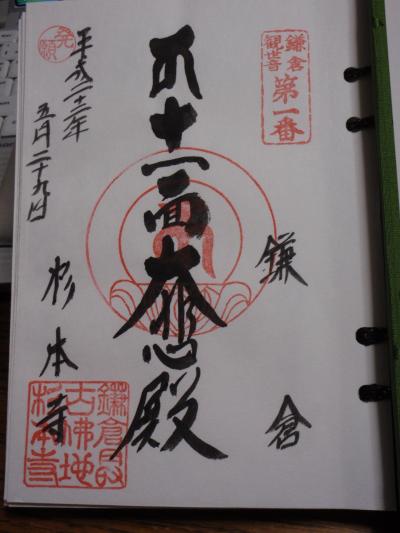 鎌倉
観世音
第一番
鎌倉
十一面大悲殿
発願
平成二十三年
五月二十九日
杉本寺
鎌倉最
古佛地
杉本寺